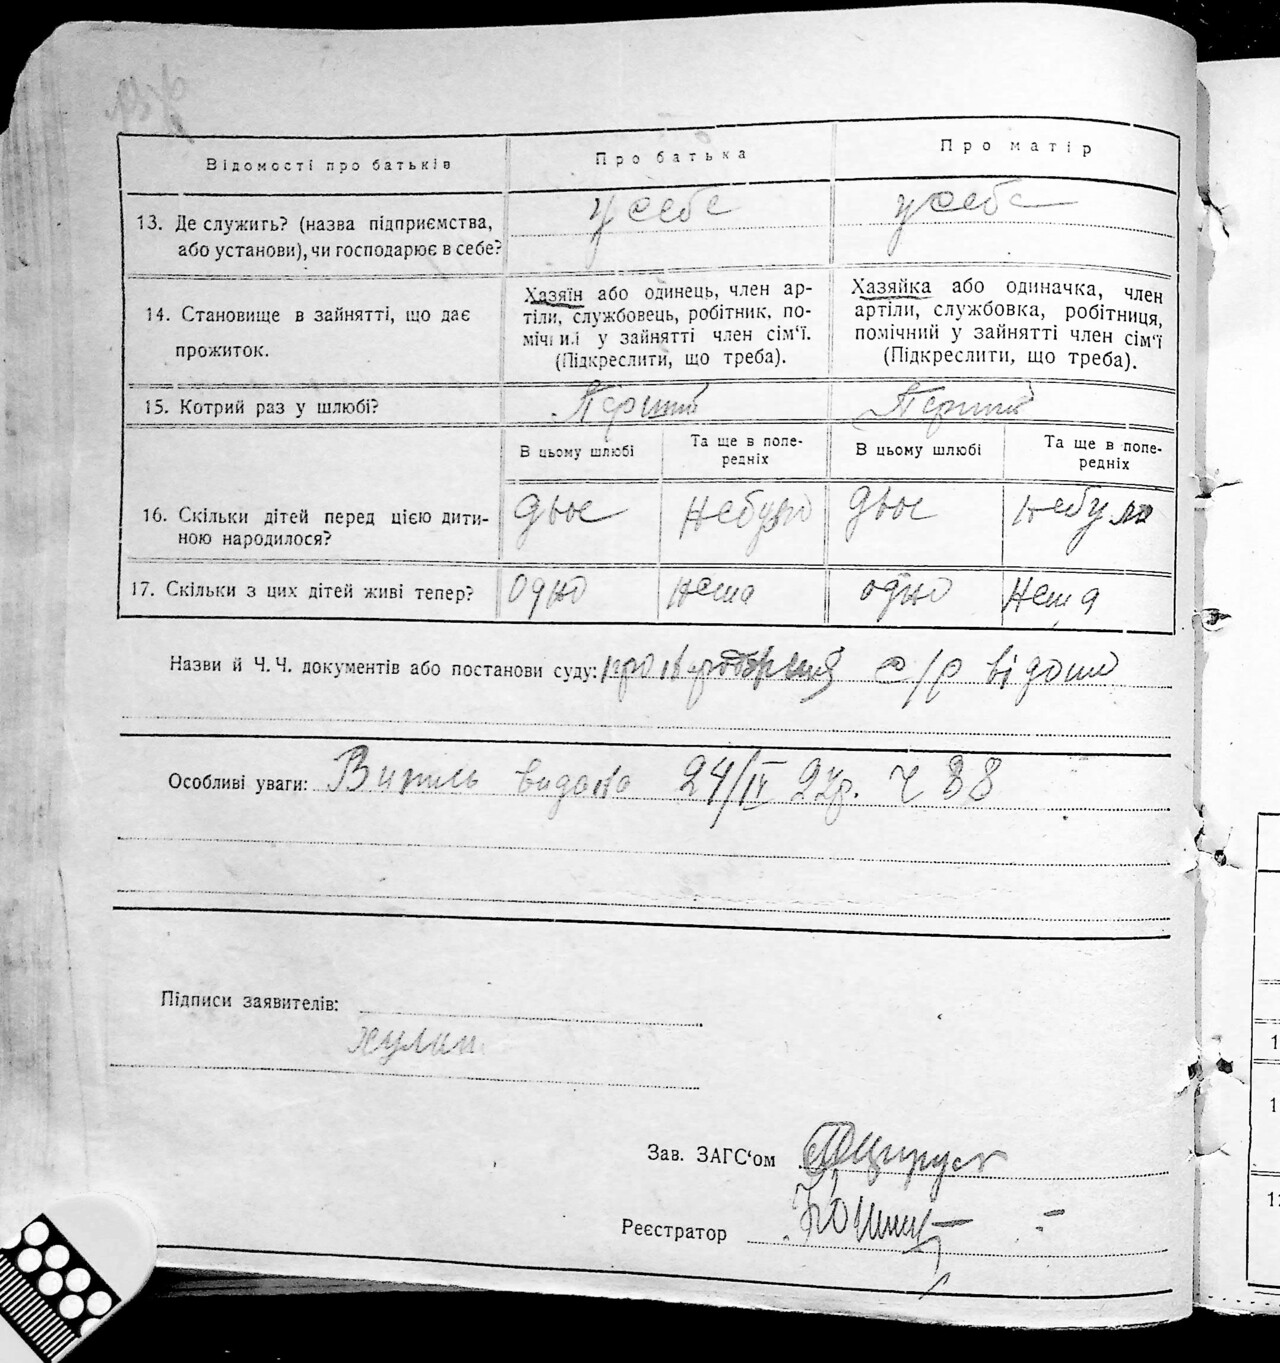 Відомості про батьків
Про батька
Про матір
13. Де служить? (назва підприємства, або установи), чи господарює в себе?
у себе
у себе
14. Становище в зайнятті, що дає прожиток.
Хазяїн або одинець, член ар-
тіли, службовець, робітник, по-
мічний у зайнятті член сім'ї.
(Підкреслити, що треба).
Хазяйка або одиначка, член
артіли, службовка, робітниця,
помічний у зайнятті член сім'ї
(Підкреслити, що треба).
15. Котрий раз у шлюбі?
Перший
Перший
В цьому шлюбі
Та ще в попе-
редніх
В цьому шлюбі
Та ще в попе-
редніх
16. Скільки дітей перед цією дити-
ною народилося?
двоє
небуло
двоє
небуло
17. Скільки з цих дітей живі тепер?
одно
нема
одно
нема
Назви й Ч.Ч. документів або постанови суду: с/р відоми
Особливі уваги: Випись видана 24/IV 27р. Ч 38
Підписи заявителів:
Зав. ЗАГС'ом
Реєстратор